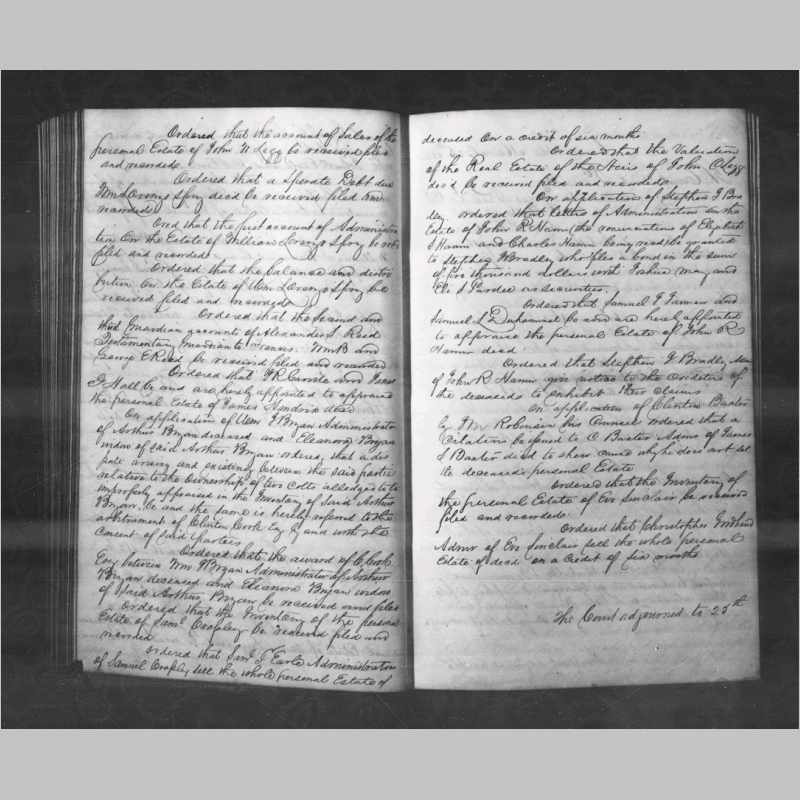 Ordered that the account of Sales of the
personal Estate of John W Legg be received filed
and recorded
Ordered that a Sperate Debt due
Wm Loveny Spry decd be received filed and
recorded
Ored that the first account of Administra
tion on the Estate of William Loveny Spry be recd
filed and recorded
Ordered that the balance and distri
bution on the Estate of Wm Loveny Spry be
received filed and recorded
Ordered that the Second and
third Guardian accounts of Alexander S. Reed
Testamentary Guardian to Wm B and
George E Reed be received filed and recorded
Ordered that and James
I Hall be and are hereby appointed to appraise
the personal Estate of James decd
On application of Wm F Bryan Administrator
of Arthur Bryan deceased and Eleanora Bryan
widow of said Arthur Bryan ordered, that a dis
pute arising and existing between the said parties
relative to the ownership of two Colts alledged to be
improperly appraised in the Inventory of said Arthur
Bryan, be and the same is hereby referred to the
arbitrament of Clinton Cook Esq by and with the
consent of said parties
Ordered that the award of C. Cook
Esq between Wm F Bryan Administrator of Arthur
Bryan deceased and Eleanora Bryan widow
of said Arthur Bryan be received and filed
Ordered that the Inventory of the personal
Estate of Saml be received filed and
recorded
Ordered that Saml T Earle Administrator
of Samuel sell the whole personal Estate of
deceased on a credit of six months
Ordered that the Valuation
of the Real Estate of the Heirs of John C Legg
decd be received filed and recorded
On application of Stephen J Bra
dley ordered that letters of Administration on the
Estate of John R Hamm (the renunciation of Elizabeth
S Hamm and Charles Hamm being read) be granted
to Stephen J Bradley who files a bond in the sum
of five thousand dollars with Joshua May and
Eli S Pardee as securities.
Ordered that Samuel T and
Samuel S Duhammel be and are hereby appointed
to appraise the personal Estate of John R
Hamm decd
Ordered that Stephen J Bradley Admr
of John R Hamm give notice to the creditors of
the deceased to exhibit their claims
On application of Clinton Baxter
by J M Robinson his Counsel ordered that a
Citation be issued to C Baxter Admr of James
S Baxter decd to show cause why he does not sell
the deceased's personal Estate
Ordered that the Inventory of
the personal Estate of Eve Sinclair be received
filed and recorded
Ordered that Christopher Goodhand
Admr of Eve Sinclair sell the whole personal
Estate of decd on a Credit of Six months
The Court adjourned to 25th